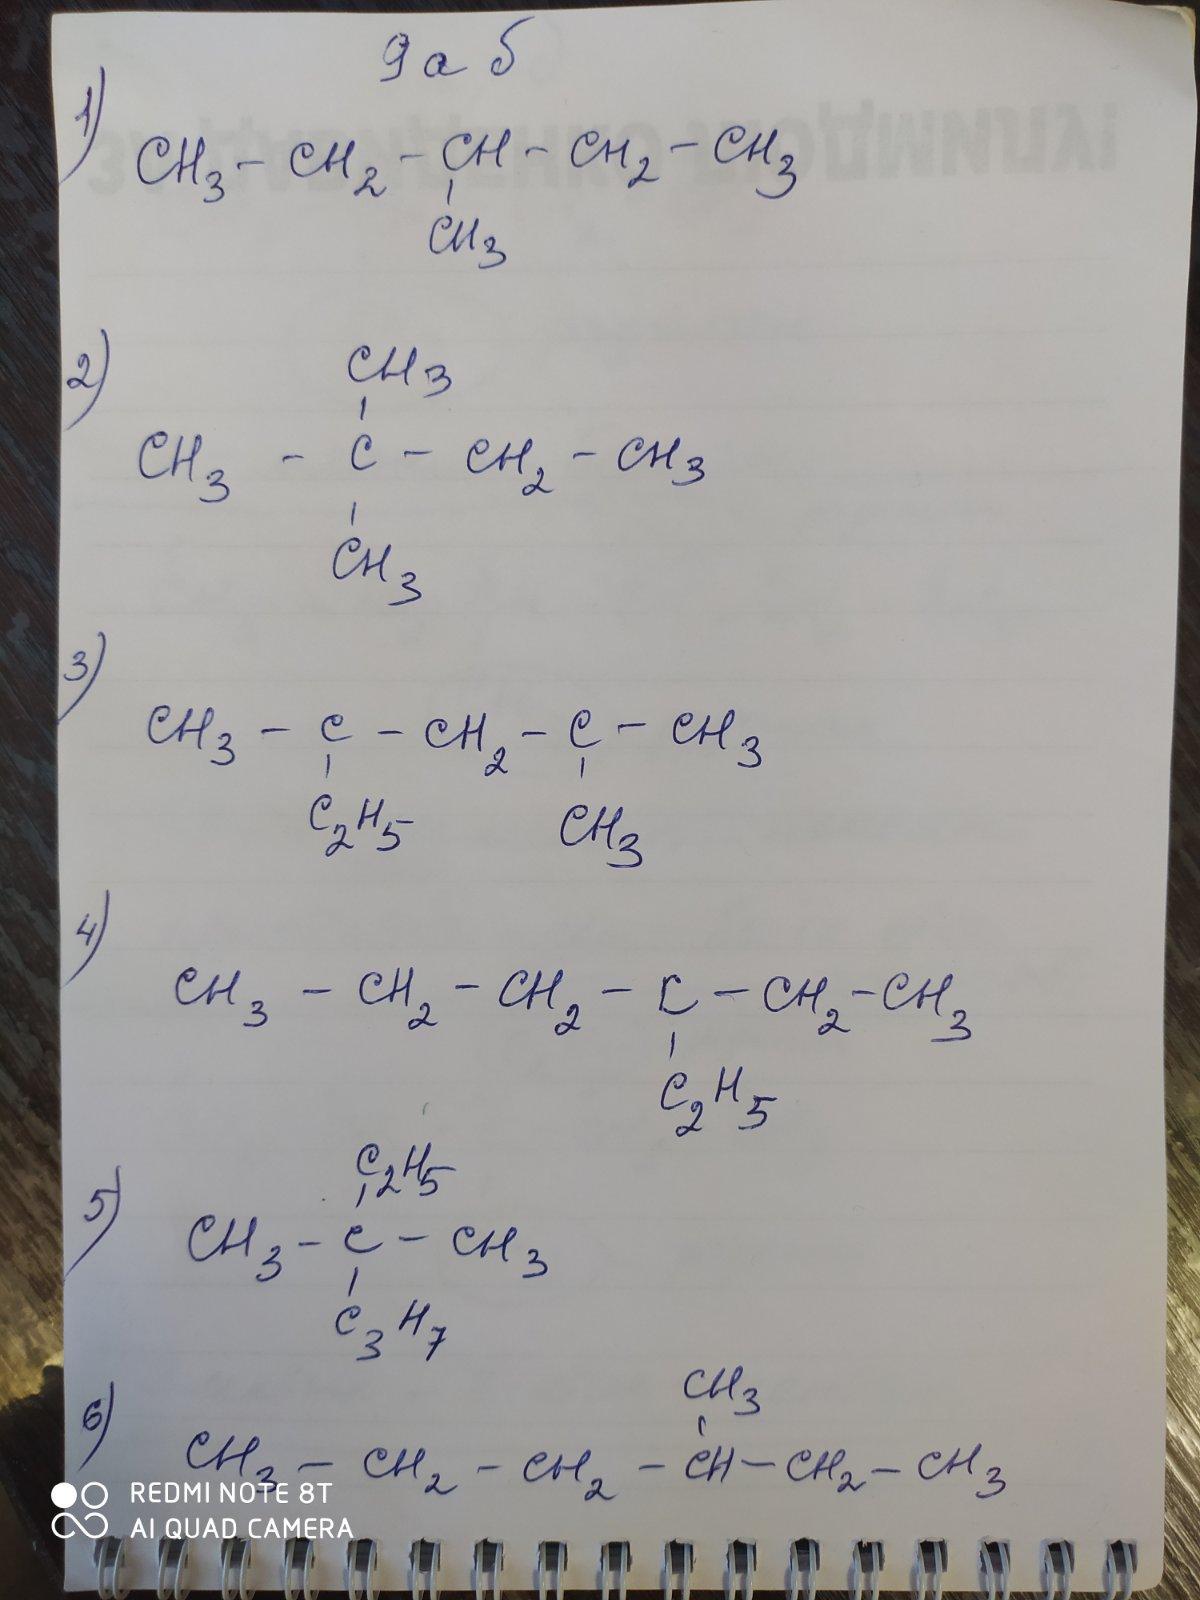 9 а б
1)
CH3 - CH2 - CH - CH2 - CH3
CH3
2)
CH3
CH3 - C - CH2 - CH3
CH3
3)
CH3 - C - CH2 - C - CH3
C2H5 CH3
4)
CH3 - CH2 - CH2 - C - CH2 - CH3
C2H5
5)
C2H5
CH3 - C - CH3
C3H7
6)
CH3
CH3 - CH2 - CH2 - CH - CH2 - CH3
REDMI NOTE 8T
AI QUAD CAMERA